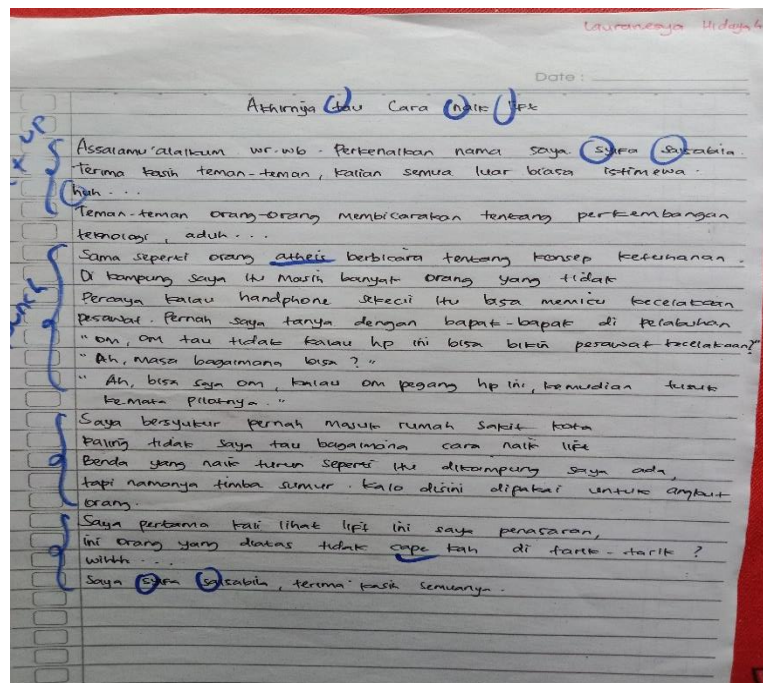 Lauraneaya Hidayah
Date :
Akhirnya tau Cara naik lift
Assalamu'alaikum wr.wb. Perkenalkan nama saya syifa salsabila.
Terima kasih teman-teman, kalian semua luar biasa istimewa.
huh...
Teman-teman orang-orang membicarakan tentang perkembangan
teknologi, aduh...
Sama seperti orang atheis berbicara tentang konsep ketuhanan.
Di kampung saya itu masih banyak orang yang tidak
Percaya kalau handphone sekecil itu bisa memicu kecelakaan
pesawat. Pernah saya tanya dengan bapak-bapak di pelabuhan
"om, om tau tidak kalau hp ini bisa bikin pesawat kecelakaan?"
"Ah, masa bagaimana bisa ?"
"Ah, bisa saja om, kalau om pegang hp ini, kemudian tusuk
kemata pilotnya."
Saya bersyukur pernah masuk rumah sakit kota
Paling tidak saya tau bagaimana cara naik lift
Benda yang naik turun seperti itu dikampung saya ada,
tapi namanya timba sumur. kalo disini dipakai untuk angkut
orang.
Saya pertama kali lihat lift ini saya penasaran,
ini orang yang diatas tidak cape kah di tarik-tarik ?
wihhh...
Saya syifa salsabila, terima kasih semuanya.